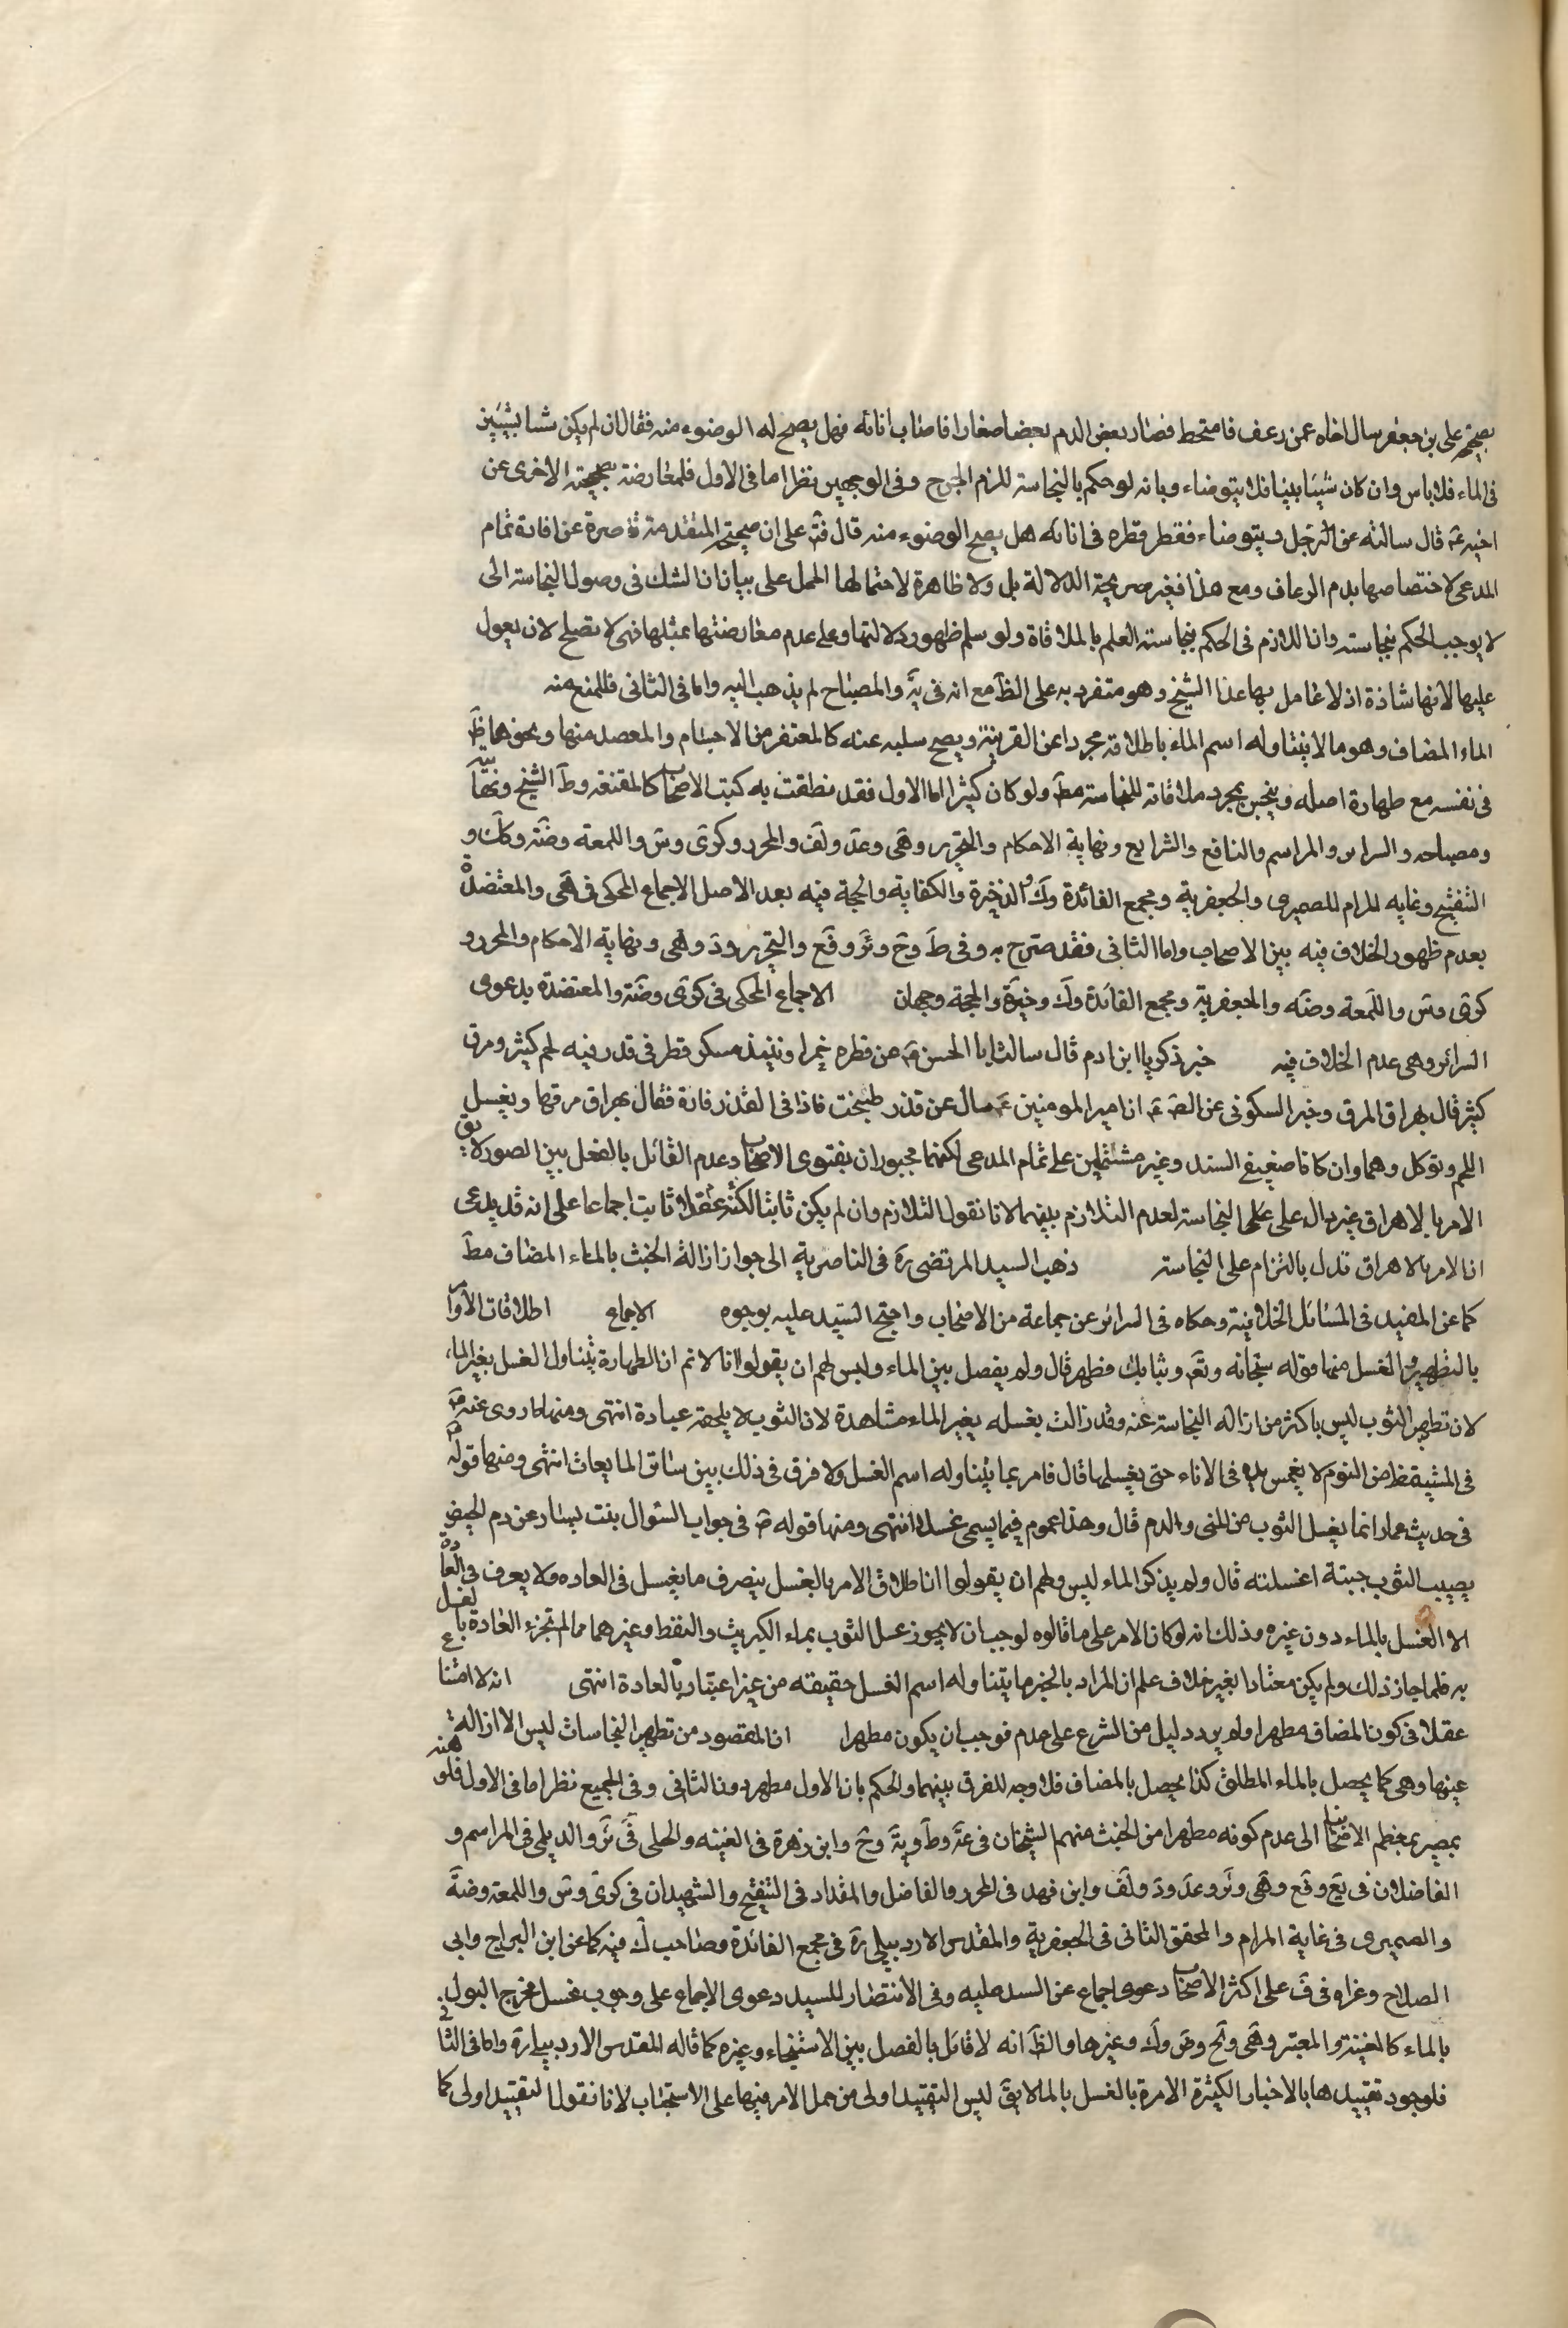 بصحيحة على بن جعفر سال اخاه عمن رعف فامتخط فصار بعض الدم بعضا صغارا فاصاب انائه فهل يصح له الوضوء منه فقال ان لم يكن شيئا يستبين
فى الماء فلا باس وان كان شيئا بينا فلا يتوضاء وبانه لو حكم بالنجاسة للزم الحرج وفى الوجهين نظر اما فى الاول فلمعارضة بصحيحته الاخرى عن
اخيه ع قال سالته عن الرجل يتوضاء فقطر قطره فى انائه هل يصح الوضوء منه قال لا على ان صحيحته المتقدمة قاصرة عن افادة تمام
المدعى لاختصاصها بدم الرعاف ومع هذا فغير صريحة الدلالة بل ولا ظاهرة لاحتمالها الحمل على بيان ان الشك فى وصول النجاسة الى
لا يوجب الحكم بنجاسته وان اللازم فى الحكم بنجاسته العلم بالملاقاة ولو سلم ظهور دلالتها وعلى عدم معارضتها بمثلها فهى لا تصلح لان يعول
عليها لانها شاذة اذ لا عامل بها عدا الشيخ وهو متفرد به على الظ مع انه فى يه والمصباح لم يذهب اليه واما فى الثانى فللمنع منه
الماء المضاف وهو ما لا يتناوله اسم الماء باطلاقه مجردا عن القرينة ويصح سلبه عنه كالمعتصر من الاجسام والمصعد منها ونحوهما ط
فى نفسه مع طهارة اصله وينجس بمجرد ملاقاته للنجاسة مط ولو كان كثيرا اما الاول فقد نطقت به كتب الاصحاب كالمقنعة وط الشيخ ونهايته
ومصباحه والسرائر والمراسم والنافع والشرايع ونهاية الاحكام والتحرير وهى وعد ولف والمحرر وكرى وس واللمعة وضه وك و
التنقيح وغاية المرام للصميرى والجعفرية ومجمع الفائدة وك والذخيرة والكفاية والحجة فيه بعد الاصل الاجماع المحكى فى هى والمعتضدة
بعدم ظهور الخلاف فيه بين الاصحاب واما الثانى فقد صرح به وفى ط وخ وئر وفع والتحرير ود وهى ونهاية الاحكام والمحرر و
كرى وس واللمعة وضه والجعفرية ومجمع الفائدة وك وخيرة والحجة وجهان الاجماع المحكى فى كرى وضه والمعتضدة بدعوى
السرائر وهى عدم الخلاف فيه خبر زكريا ابن ادم قال سالت ابا الحسن ع عن قطره خمرا ونبيذ مسكر قطر فى قدر فيه لحم كثير ومرق
كثير قال يهراق المرق وخبر السكونى عن الص ع ان امير المومنين ع سال عن قدر طبخت فاذا فى القدر فارة فقال يهراق مرقها ويغسل
اللحم وتوكل وهما وان كانا ضعيفى السند وغير مشتملين على تمام المدعى لكنهما مجبوران بفتوى الاصحاب وعدم القائل بالفصل بين الصور لا يق
الامر بالاهراق غير دال على النجاسة لعدم التلازم بينهما لانا نقول التلازم وان لم يكن ثابتا لكنه عقلا ثابت اجماعا على انه قد يدعى
ان الامر بالاهراق تدل بالتزام على النجاسة ذهب السيد المرتضى ره فى الناصرية الى جواز ازالة الخبث بالماء المضاف مط
كما عن المفيد فى المسائل الخلافية وحكاه فى السرائر عن جماعة من الاصحاب واحتج السيد عليه بوجوه الاجماع اطلاقات الاوامر
بالتطهير والغسل منها قوله سبحانه وتع وثيابك فطهر قال ولم يفصل بين الماء وليس لهم ان يقولوا انا لا نم ان الطهارة يتناول الغسل بغير الماء
لان تطهير الثوب ليس باكثر من ازاله النجاسة عنه وقد زالت بغسله بغير الماء مشاهدة لان الثوب لا يلحقه عبادة انتهى ومنها ما روى عنه ص
فى المستيقظ من النوم لا يغمس يده فى الاناء حتى يغسلها قال فامر بما يتناوله اسم الغسل ولا فرق فى ذلك بين سائر المايعات انتهى ومنها قوله
فى حديث عمار انما يغسل الثوب من المنى والدم قال وهذا عموم فيما يسمى غسلا انتهى ومنها قوله ص فى جواب السؤال بنت يسار عن دم الحيض
يصيب الثوب حتيه اغسلنه قال ولم يذكر الماء ليس ولهم ان يقولوا ان اطلاق الامر بالغسل ينصرف ما يغسل فى العاده ولا يعرف فى العادة
الا الغسل بالماء دون غيره وذلك انه لو كان الامر على ما قالوه لوجب ان لا يجوز غسل الثوب بماء الكبريت والنفط وغيرهما مما لم تجرء العادة بالغسل
به فلما جاز ذلك ولم يكن معتادا بغير خلاف علم ان المراد بالخبر ما يتناوله اسم الغسل حقيقه من غير اعتبار بالعادة انتهى انه لا امتناع
عقلا فى كون المضاف مطهرا ولم يرد دليل من الشرع على عدم فوجب ان يكون مطهرا ان المقصود من تطهير النجاسات ليس الا ازالة
عينها وهى كما يحصل بالماء المطلق كذا يحصل بالمضاف فلا وجه للفرق بينهما والحكم بان الاول مطهر دون الثانى وفى الجميع نظر اما فى الاول فلو
بمصير معظم الاصحاب الى عدم كونه مطهرا من الخبث منهم الشيخان فى عه وط ويه وخ وابن زهرة فى الغنيه والحلى فى ئر والديلمى فى المراسم و
الفاضلان فى يع وفع وهى وئر وعد ود ولف وابن فهد فى المحرر والفاضل والمقداد فى التنقيح والشهيدان فى كرى وس واللمعة وضه
والصميرى فى غاية المرام والمحقق الثانى فى الجعفرية والمقدس الاردبيلى ره فى مجمع الفائدة وصاحب ك فيه كما عن ابن البراج وابى
الصلاح وعزاه فى ف على اكثر الاصحاب دعوى اجماع عن السيد عليه وفى الانتصار للسيد دعوى الاجماع على وجوب غسل مخرج البول
بالماء كالغنية والمعتبر وهى ولح وض وك وغيرها والظ انه لا قائل بالفصل بين الاستنجاء وغيره كما قاله المقدس الاردبيلى ره واما فى الثانى
فلوجود تقييدها بالاخبار الكثيرة الامرة بالغسل بالماء لا يق ليس التقييد اولى من حمل الامر فيها على الاستحباب لانا نقول التقييد اولى كما